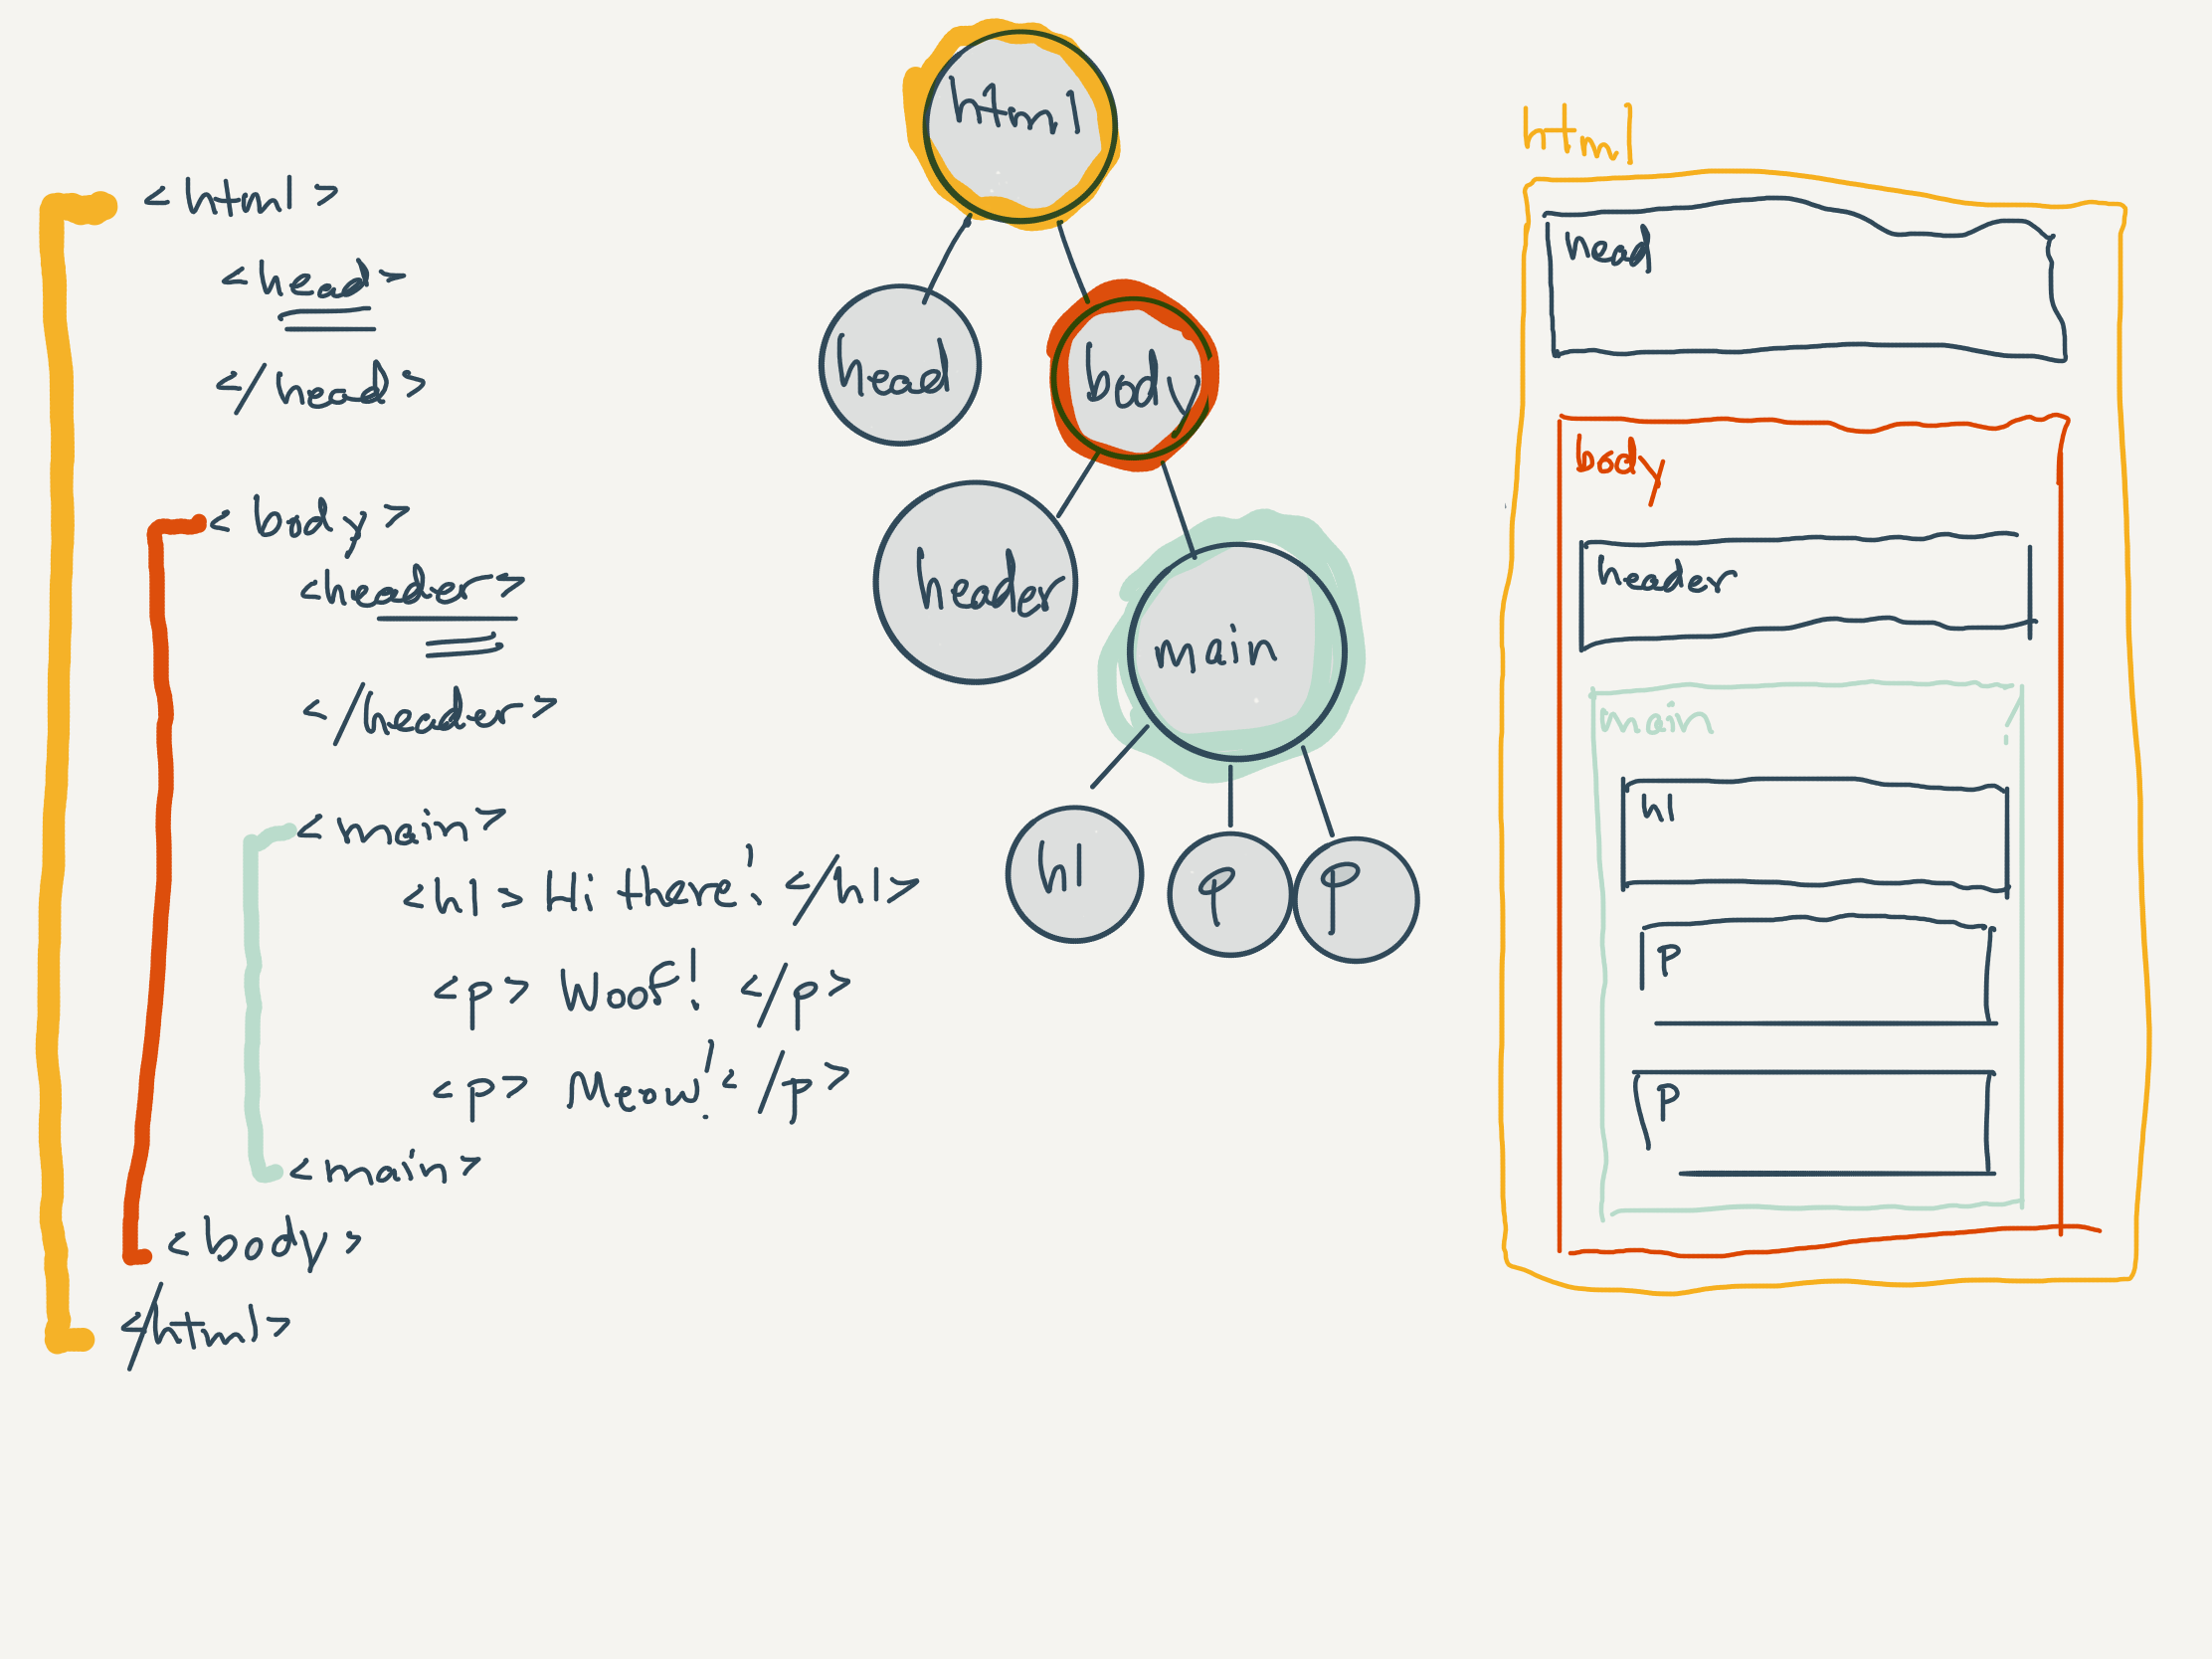 <html>
<head>
</head>
<body>
<header>
</header>
<main>
<h1> Hi there! </h1>
<p> Woof! </p>
<p> Meow! </p>
<main>
<body>
</html>
html
head
body
header
main
h1
p
p
html
head
body
header
main
h1
p
p